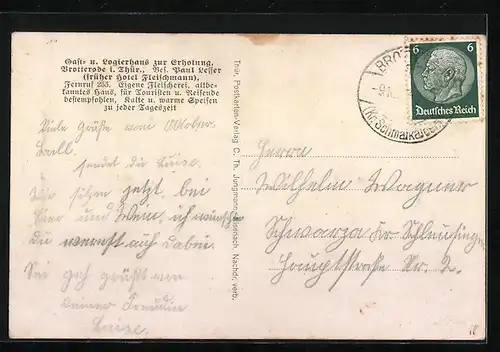 Gast- u. Logierhaus zur Erholung,
Brotterode i. Thür., Bes. Paul Lesser
(früher Hotel Fleischmann).
Fernruf 255. Eigene Fleischerei, altbe-
kanntes Haus, für Touristen u. Reisende
bestempfohlen, Kalte u. warme Speisen
zu jeder Tageszeit
Viele Grüße vom Oktober-
ball.
sendet die Luise.
Wir sitzen jetzt bei
Bier und Wein, ich wünsche
Du wärst auch dabei.
Sei gegrüßt von
Deiner Freundin
Luise.
Thür. Postkarten-Verlag C. Th. Jungmann, Eisenach. Nachdr. verb.
6
Deutsches Reich
(Kr. Schmalkalden)
Herrn
Wilhelm Wagner
Schwarza Kr. Schleusingen
Hauptstraße Nr. 2.